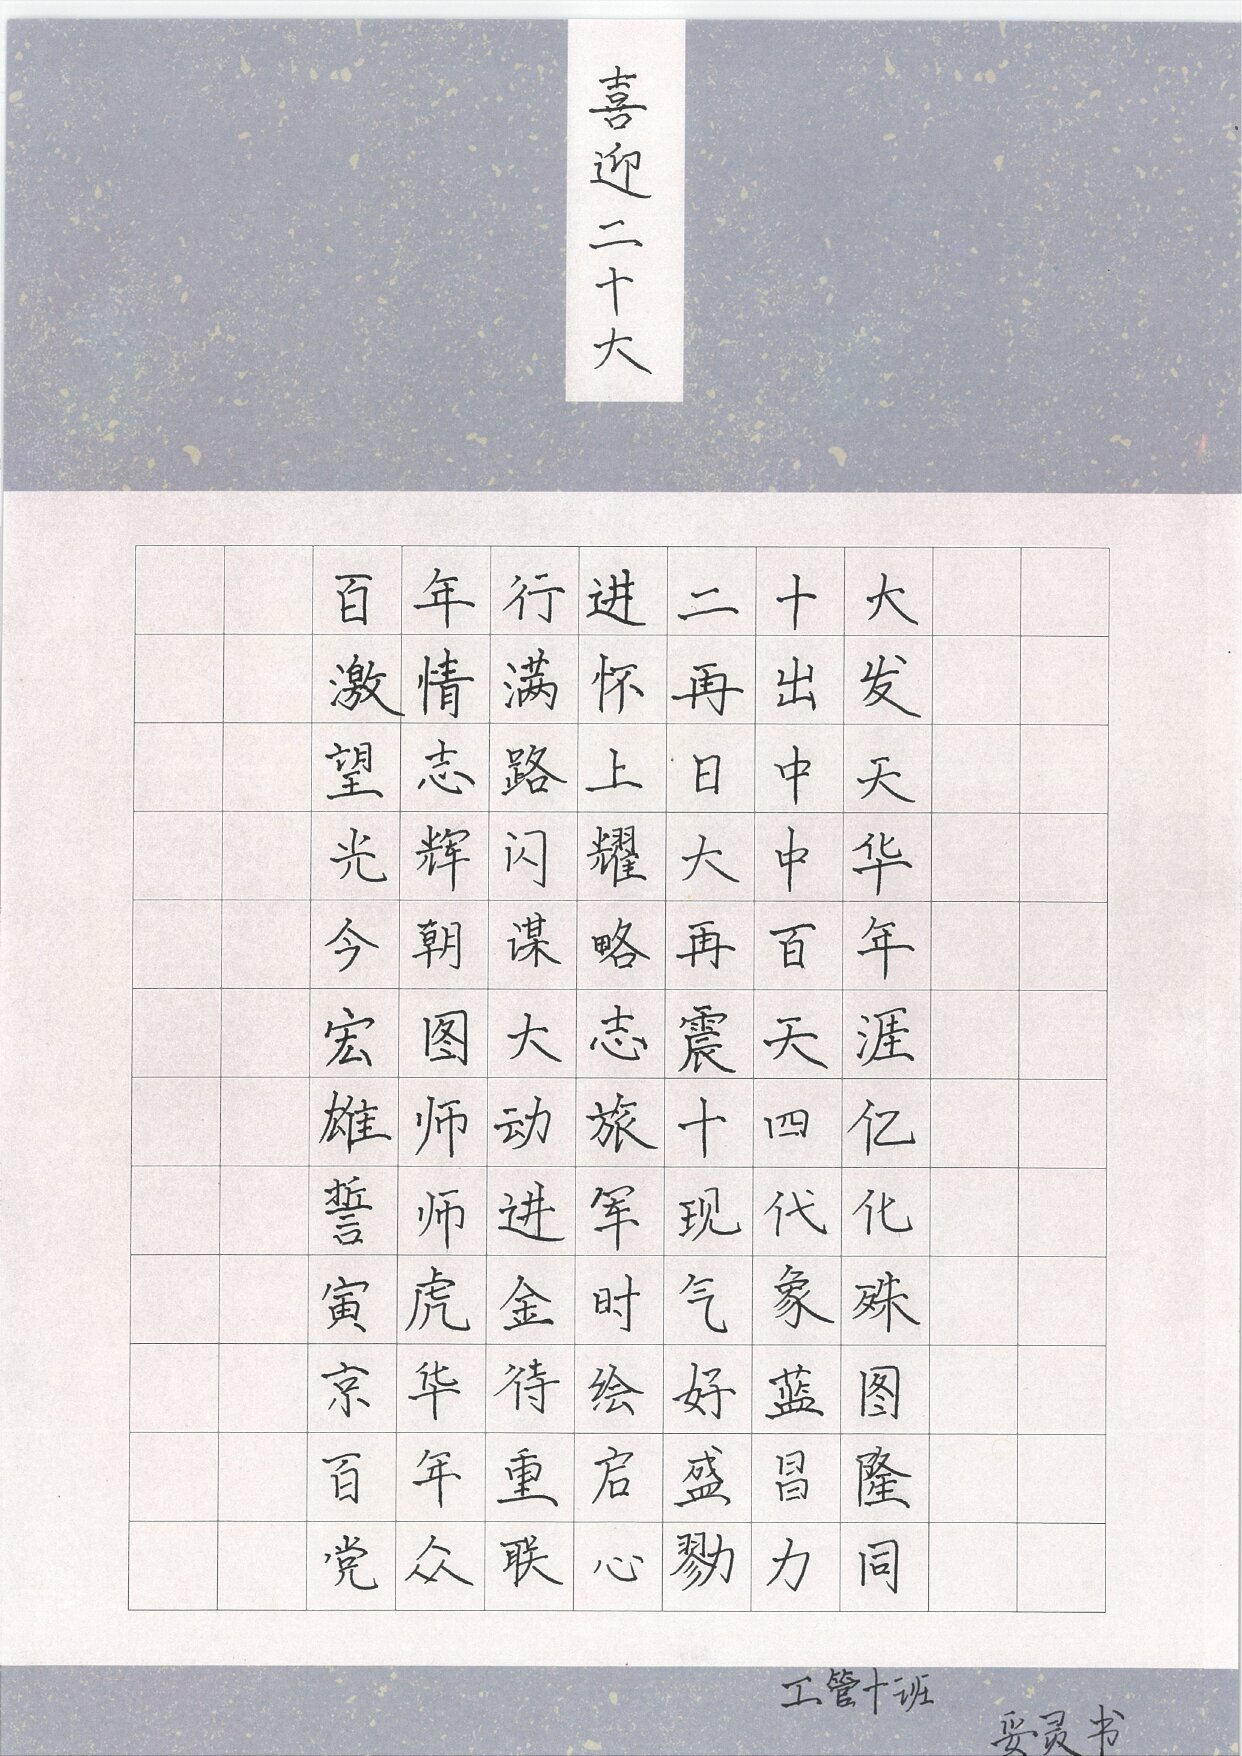 喜迎二十大
百年行进二十大
激情满怀再出发
望志路上日中天
光辉闪耀大中华
今朝谋略再百年
宏图大志震天涯
雄师动旅十四亿
誓师进军现代化
寅虎金时气象殊
京华待绘好蓝图
百年重启盛昌隆
党众联心勠力同
工管十班
妥灵书